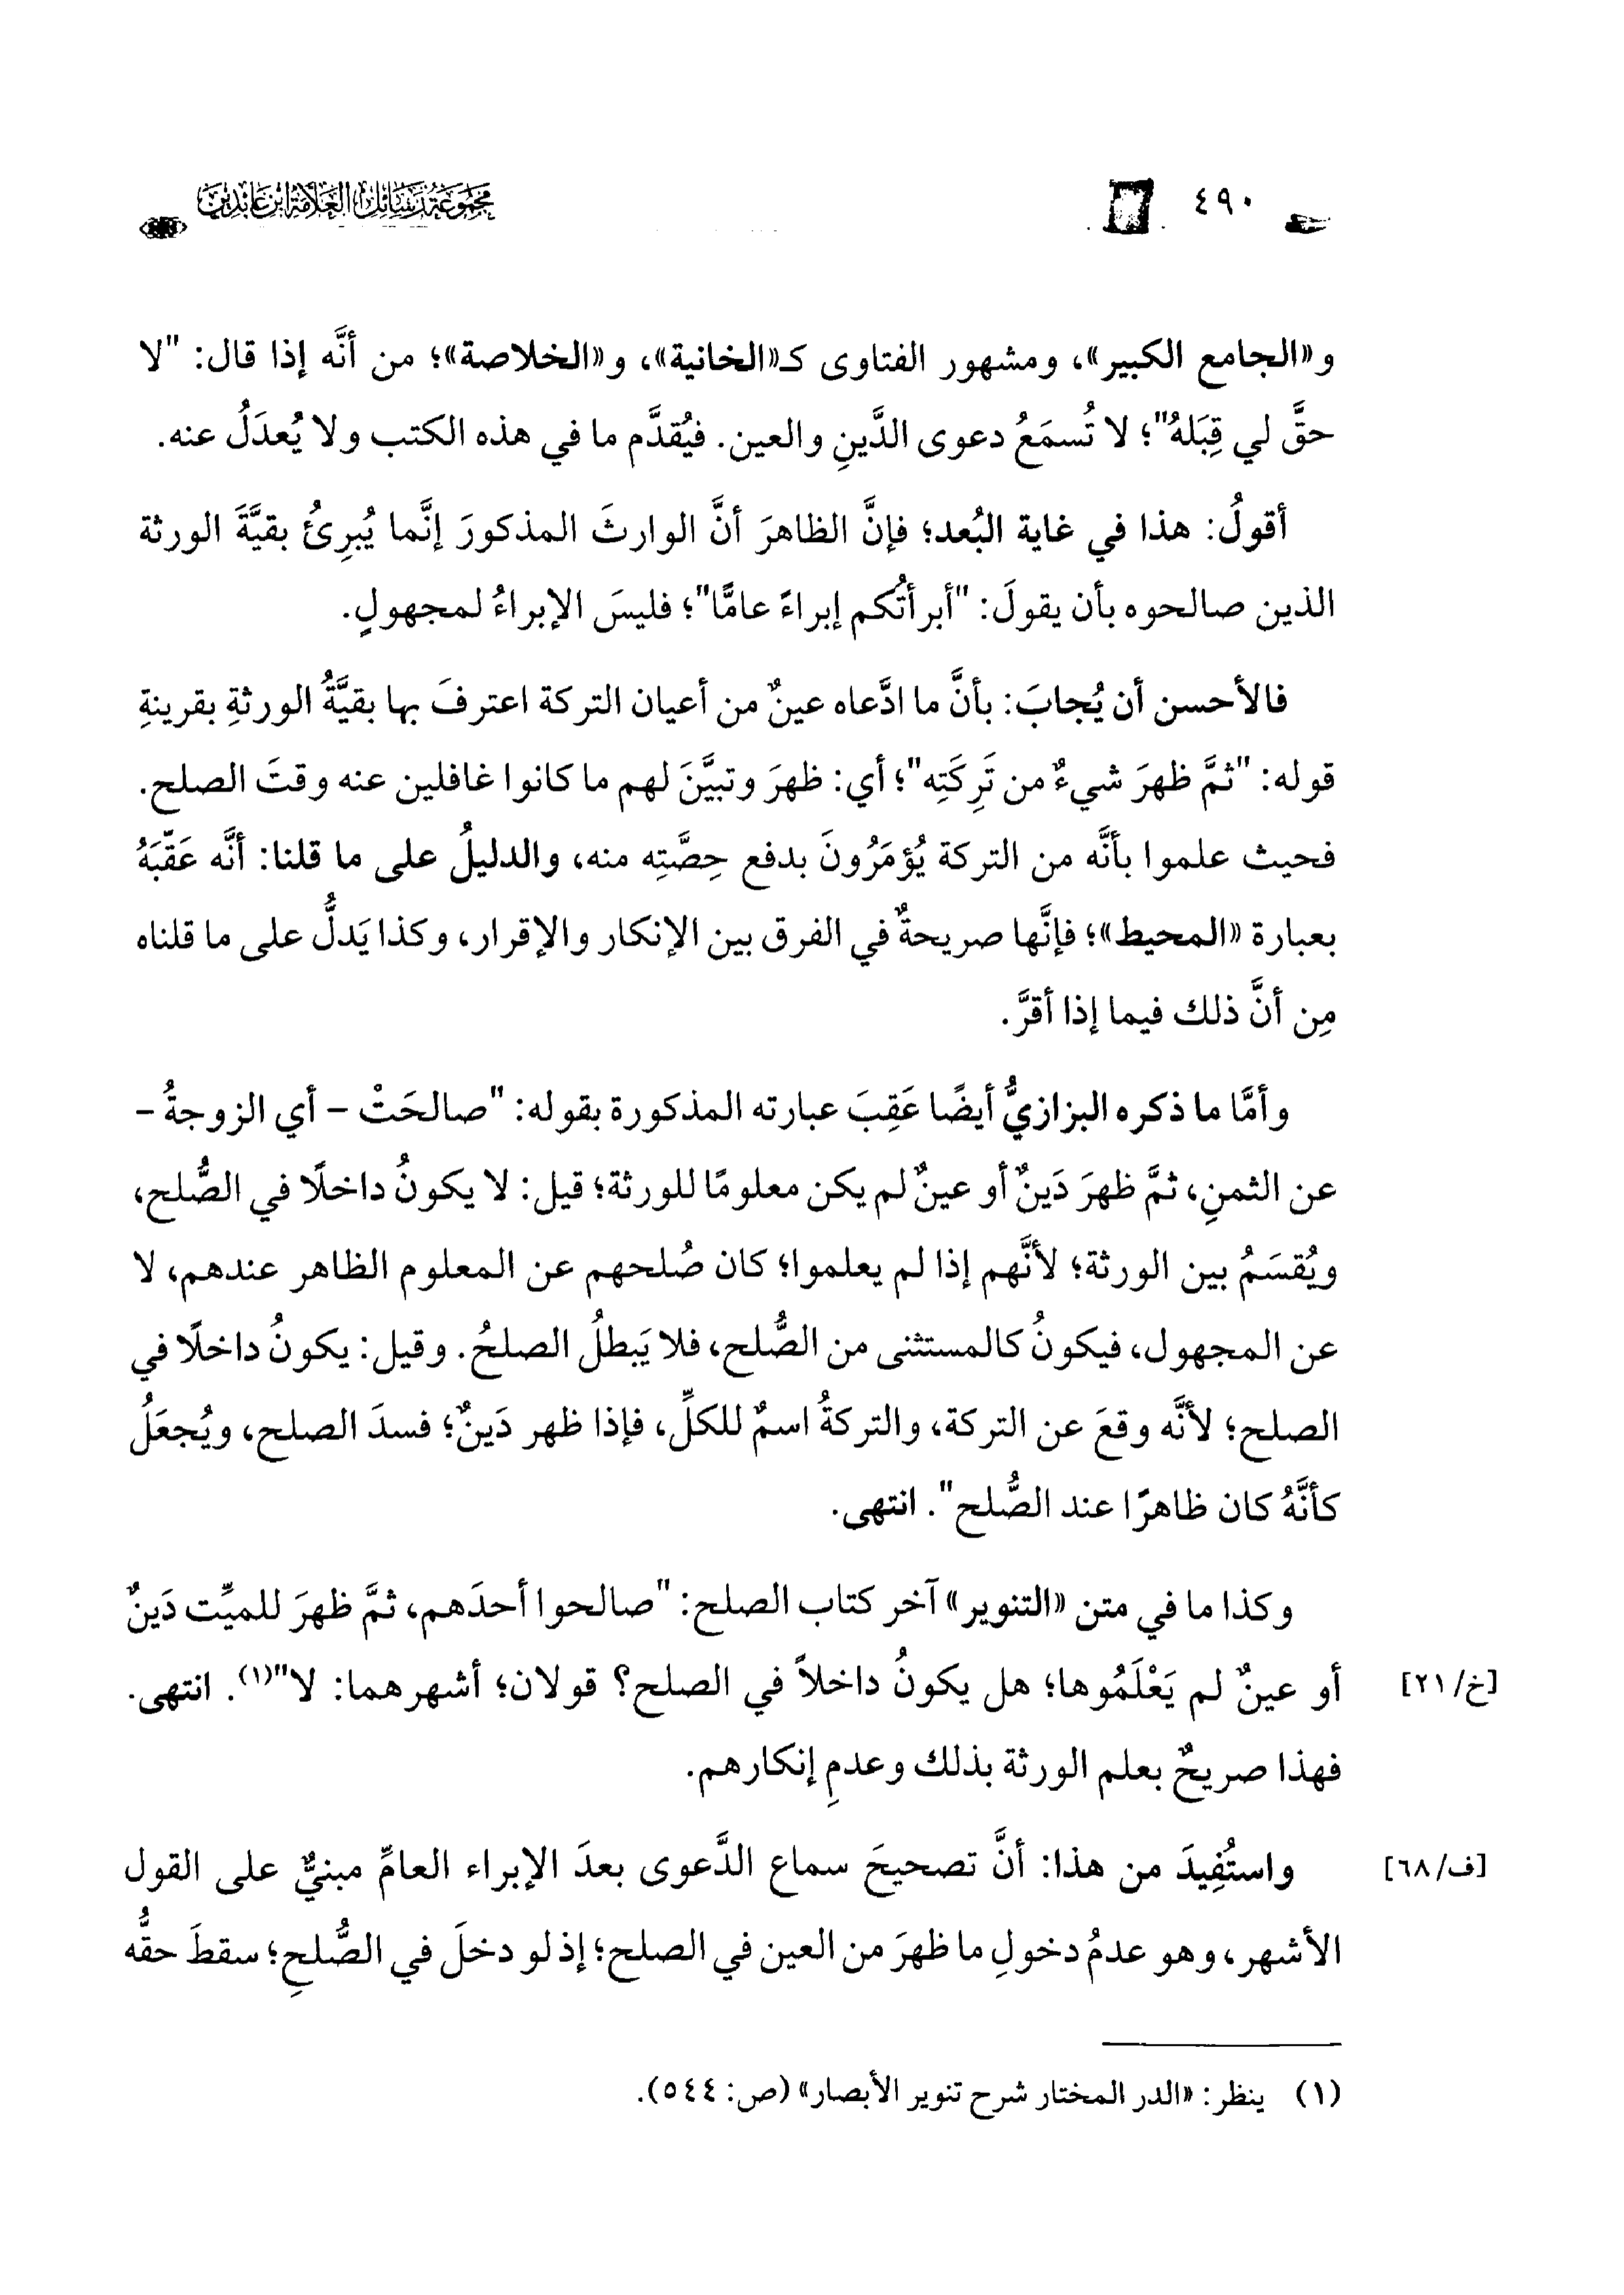 ٤٩٠
مجموعة رسائل العلامة ابن عابدين
و«الجامع الكبير»، ومشهور الفتاوى كـ«الخانية»، و«الخلاصة»؛ من أنَّه إذا قال: "لا
حقَّ لي قِبَلَهُ"؛ لا تُسمَعُ دعوى الدَّينِ والعين. فيُقدَّم ما في هذه الكتب ولا يُعدَلُ عنه.
أقولُ: هذا في غاية البُعد؛ فإنَّ الظاهرَ أنَّ الوارثَ المذكورَ إنَّما يُبرِئُ بقيَّةَ الورثة
الذين صالحوه بأن يقولَ: "أبرأتُكم إبراءً عامًّا"؛ فليسَ الإبراءُ لمجهولٍ.
فالأحسن أن يُجابَ: بأنَّ ما ادَّعاه عينٌ من أعيان التركة اعترفَ بها بقيَّةُ الورثةِ بقرينةِ
قوله: "ثمَّ ظهرَ شيءٌ من تَرِكَتِه"؛ أي: ظهرَ وتبيَّنَ لهم ما كانوا غافلين عنه وقتَ الصلح.
فحيث علموا بأنَّه من التركة يُؤمَرُونَ بدفع حِصَّتِه منه، والدليلُ على ما قلنا: أنَّه عَقَّبَهُ
بعبارة «المحيط»؛ فإنَّها صريحةٌ في الفرق بين الإنكار والإقرار، وكذا يَدلُّ على ما قلناه
مِن أنَّ ذلك فيما إذا أقرَّ.
وأمَّا ما ذكره البزازيُّ أيضًا عَقِبَ عبارته المذكورة بقوله: "صالحَتْ – أي الزوجةُ –
عن الثمنِ، ثمَّ ظهرَ دَينٌ أو عينٌ لم يكن معلومًا للورثة؛ قيل: لا يكونُ داخلًا في الصُّلح،
ويُقسَمُ بين الورثة؛ لأنَّهم إذا لم يعلموا؛ كان صُلحهم عن المعلوم الظاهر عندهم، لا
عن المجهول، فيكونُ كالمستثنى من الصُّلح، فلا يَبطلُ الصلحُ. وقيل: يكونُ داخلًا في
الصلح؛ لأنَّه وقعَ عن التركة، والتركةُ اسمٌ للكلِّ، فإذا ظهر دَينٌ؛ فسدَ الصلح، ويُجعَلُ
كأنَّهُ كان ظاهرًا عند الصُّلح". انتهى.
وكذا ما في متن «التنوير» آخر كتاب الصلح: "صالحوا أحدَهم، ثمَّ ظهرَ للميِّت دَينٌ
أو عينٌ لم يَعْلَمُوها؛ هل يكونُ داخلاً في الصلح؟ قولان؛ أشهرهما: لا"(١). انتهى. [خ/٢١]
فهذا صريحٌ بعلم الورثة بذلك وعدمِ إنكارهم.
واستُفِيدَ من هذا: أنَّ تصحيحَ سماع الدَّعوى بعدَ الإبراء العامِّ مبنيٌّ على القول [ف/٦٨]
الأشهر، وهو عدمُ دخولِ ما ظهرَ من العين في الصلح؛ إذ لو دخلَ في الصُّلحِ؛ سقطَ حقُّه
(١) ينظر: «الدر المختار شرح تنوير الأبصار» (ص: ٥٤٤).